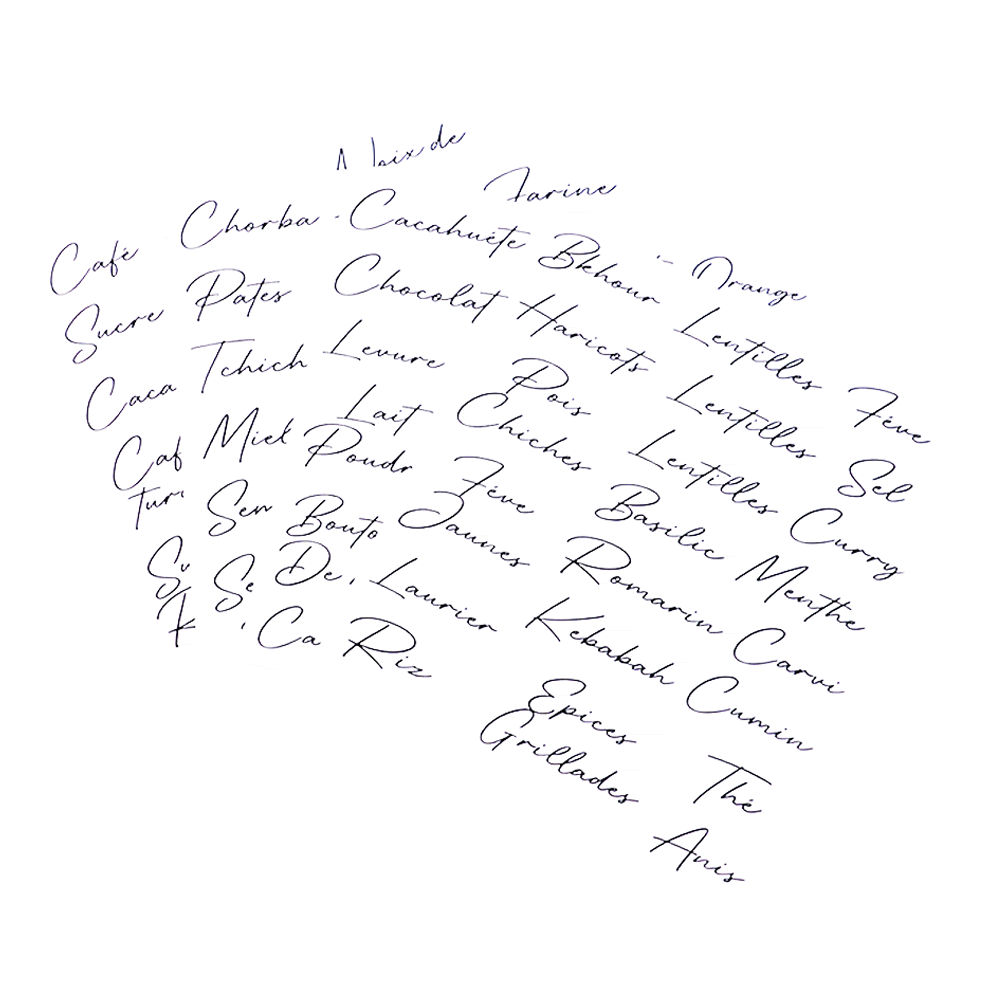 Farine
Café Chorba Cacahuète Bkhour Orange
Sucre Pates Chocolat Haricots Lentilles Fève
Caca Tchich Levure Pois Chiches Lentilles Sel
Caf Miel Lait Poudr Fève Jaunes Basilic Lentilles Curry
Sen Bouto Romarin Menthe
Su Se De Laurier Kebabah Carvi
Ca Riz Epices Grillades Cumin
Thé
Anis